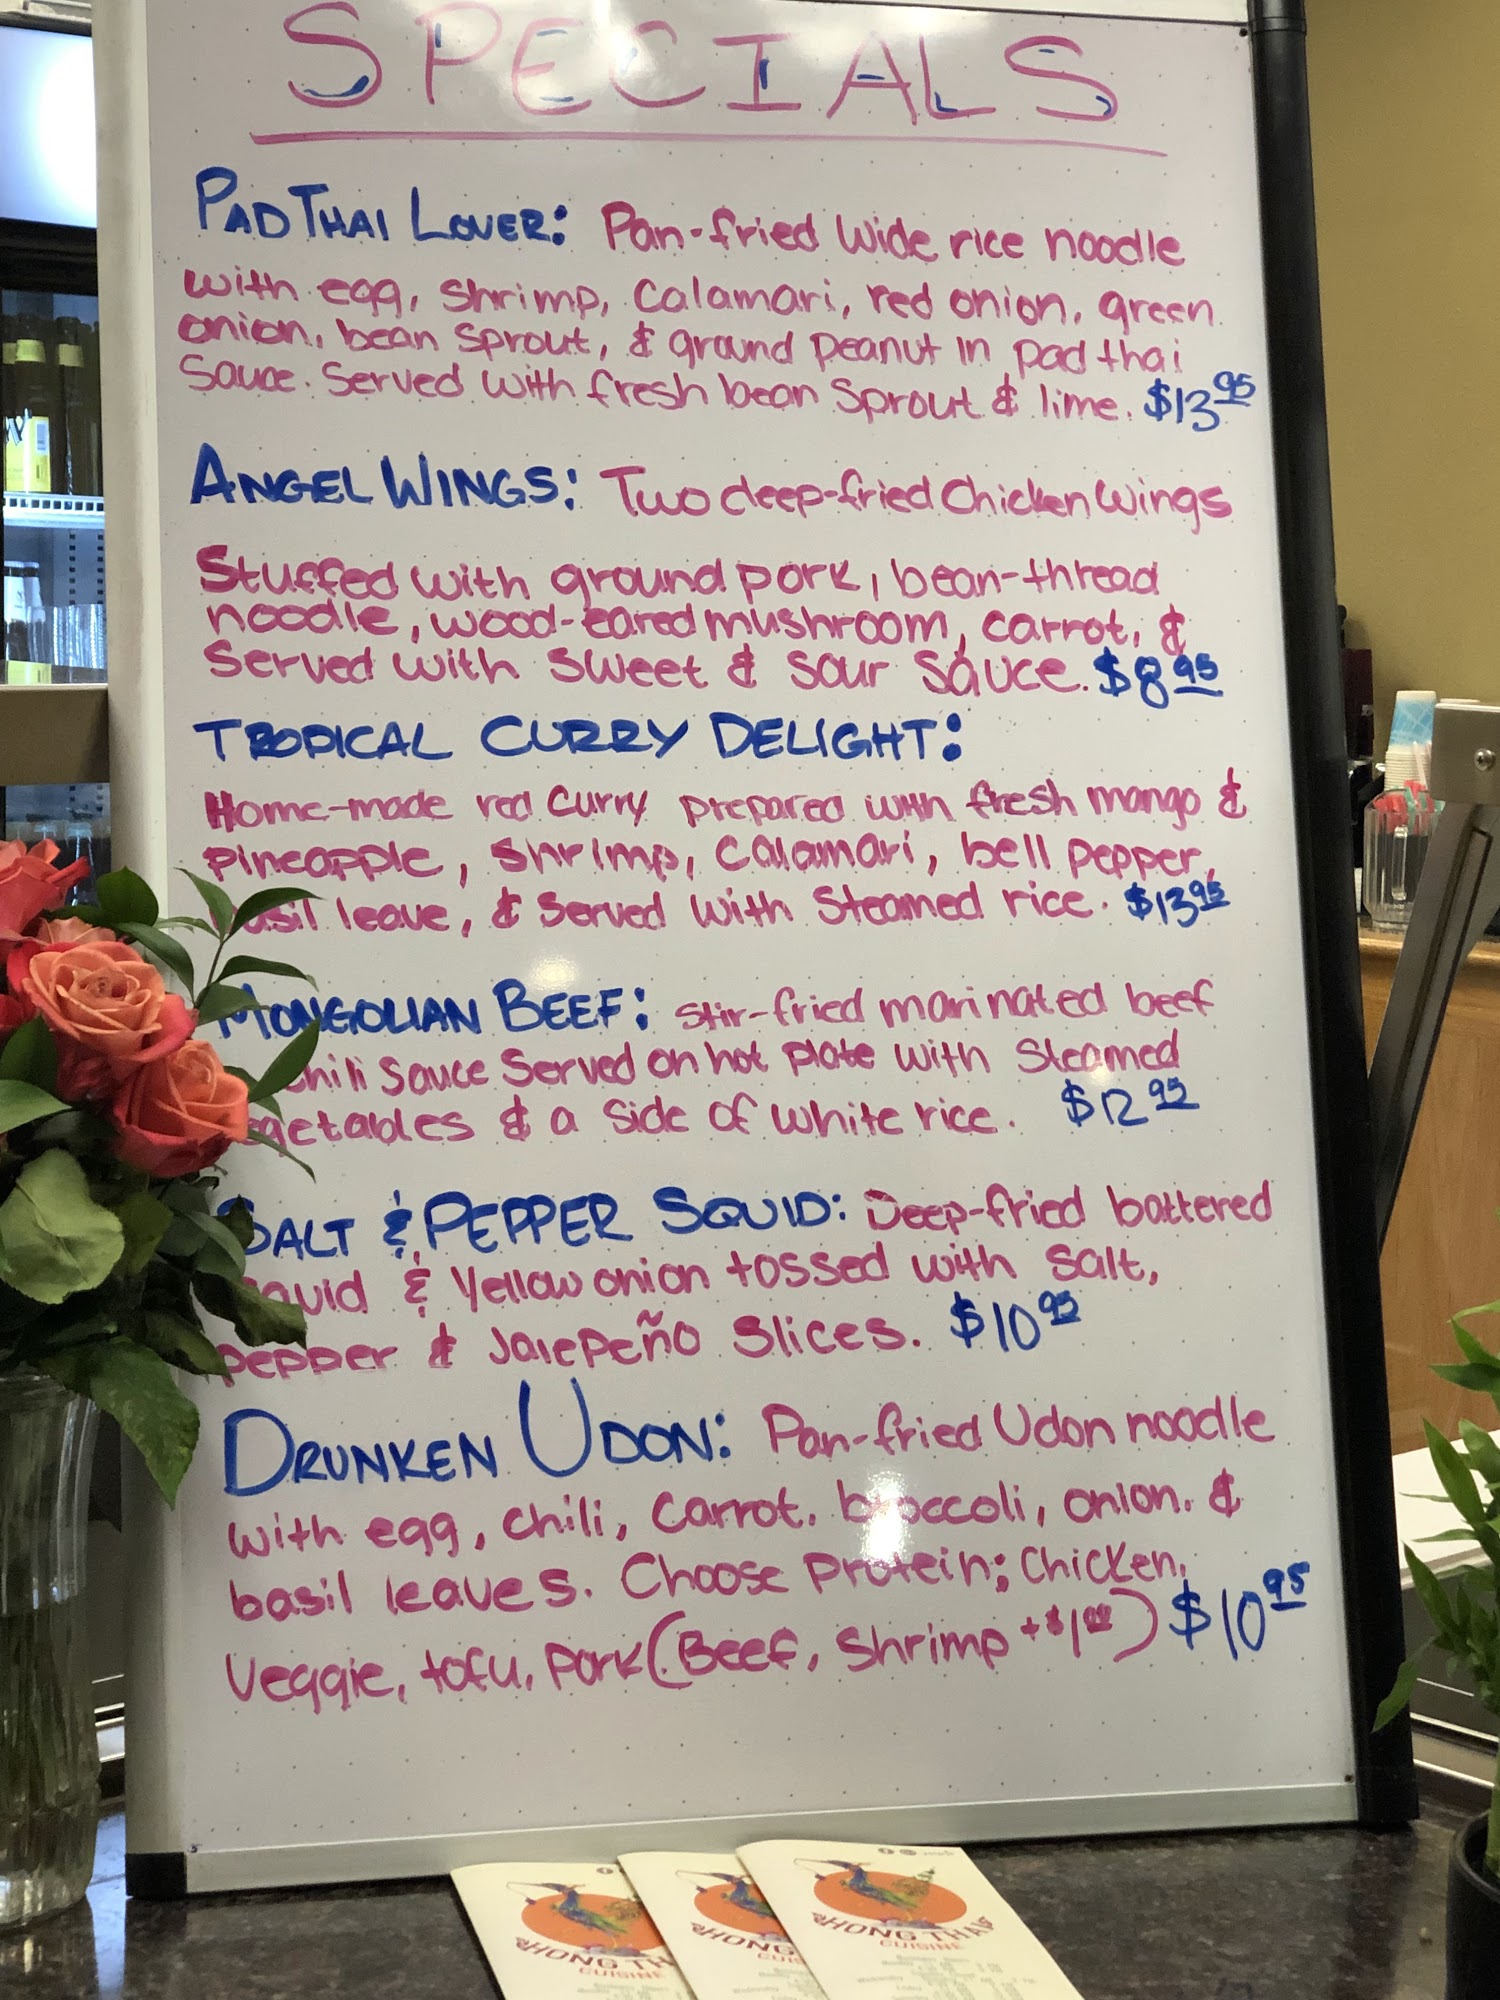 SPECIALS
PAD THAI LOVER: Pan-fried wide rice noodle
with egg, shrimp, calamari, red onion, green
onion, bean sprout, & ground peanut in pad thai
Sauce. Served with fresh bean sprout & lime. $13.95
ANGEL WINGS: Two deep-fried chicken wings
Stuffed with ground pork, bean-thread
noodle, wood-eared mushroom, carrot, &
Served with sweet & sour sauce. $8.95
TROPICAL CURRY DELIGHT:
Home-made red curry prepared with fresh mango &
pineapple, shrimp, calamari, bell pepper,
basil leave, & served with steamed rice. $13.95
MONGOLIAN BEEF: stir-fried marinated beef
chili sauce served on hot plate with steamed
vegetables & a side of white rice. $12.95
SALT & PEPPER SQUID: Deep-fried battered
squid & yellow onion tossed with salt,
pepper & Jalepeño slices. $10.95
DRUNKEN UDON: Pan-fried Udon noodle
with egg, chili, carrot, broccoli, onion, &
basil leaves. Choose protein; chicken,
Veggie, tofu, pork (Beef, shrimp +$1.00) $10.95
HONG THAI
CUISINE